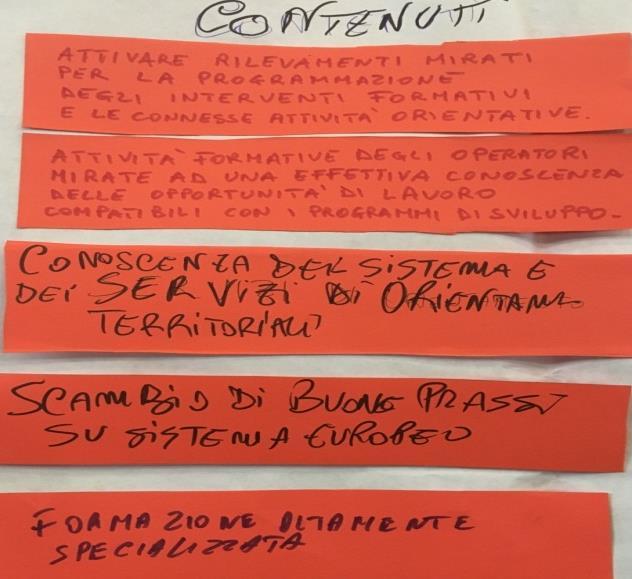 CONTENUTI
ATTIVARE RILEVAMENTI MIRATI
PER LA PROGRAMMAZIONE
DEGLI INTERVENTI FORMATIVI
E LE CONNESSE ATTIVITÀ ORIENTATIVE.
ATTIVITÀ FORMATIVE DEGLI OPERATORI
MIRATE AD UNA EFFETTIVA CONOSCENZA
DELLE OPPORTUNITÀ DI LAVORO
COMPATIBILI CON I PROGRAMMI DI SVILUPPO-
CONOSCENZA DEL SISTEMA E
DEI SERVIZI DI ORIENTAM.
TERRITORIALI
SCAMBIO DI BUONE PRASSI
SU SISTEMA EUROPEO
FORMAZIONE ALTAMENTE
SPECIALIZZATA